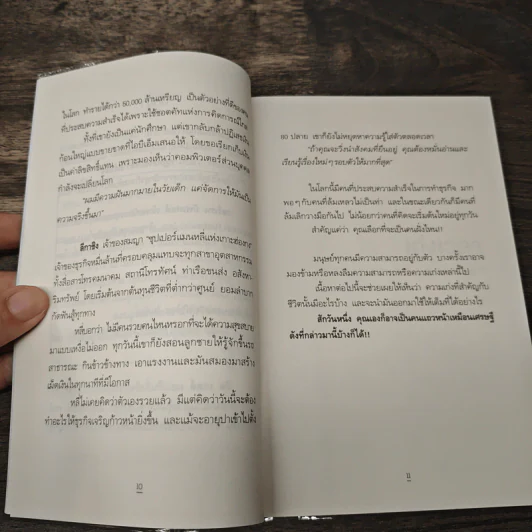 ในโลก ทำรายได้กว่า 60,000 ล้านเหรียญ เป็นตัวอย่างที่ดีของคน
ที่ประสบความสำเร็จได้เพราะใช้ซอตคัทแห่งการคิดการณ์ไกล
ทั้งที่เขายังเป็นแค่นักศึกษา แต่เขากลับกล้าปฏิเสธเงิน
ก้อนใหญ่แบบขายขาดที่ไอบีเอ็มเสนอให้ โดยขอเรียกเก็บเงิน
เป็นค่าลิขสิทธิ์แทน เพราะมองเห็นว่าคอมพิวเตอร์ส่วนบุคคล
กำลังจะเปลี่ยนโลก
"ผมมีความฝันมากมายในวัยเด็ก แต่จัดการให้มันเป็น
ความจริงขึ้นมา"
ลีกาชิง เจ้าของสมญา "ซุปเปอร์แมนหลี่แห่งเกาะฮ่องกง"
เจ้าของธุรกิจหมื่นล้านที่ครอบคลุมแทบจะทุกสาขาอุตสาหกรรม
ทั้งสื่อสารโทรคมนาคม สถานีโทรทัศน์ ท่าเรือขนส่ง อสังหา-
ริมทรัพย์ โดยเริ่มต้นจากต้นทุนชีวิตที่ต่ำกว่าศูนย์ ยอมลำบาก
กัดฟันสู้ทุกทาง
หลี่บอกว่า ไม่มีคนรวยคนไหนหรอกที่จะได้ความสุขสบาย
มาแบบเหงื่อไม่ออก ทุกวันนี้เขาก็ยังสอนลูกชายให้รู้จักขึ้นรถ
สาธารณะ กินข้าวข้างทาง เอาแรงงานและมันสมองมาสร้าง
เม็ดเงินในทุกนาทีที่มีโอกาส
หลี่ไม่เคยคิดว่าตัวเองรวยแล้ว มีแต่คิดว่าวันนี้จะต้อง
ทำอะไรให้ธุรกิจเจริญก้าวหน้ายิ่งขึ้น และแม้จะอายุปาเข้าไปตั้ง
10
80 ปลาย เขาก็ยังไม่หยุดหาความรู้ใส่ตัวตลอดเวลา
"ถ้าคุณจะวิ่งนำสังคมที่ยืนอยู่ คุณต้องหมั่นอ่านและ
เรียนรู้เรื่องใหม่ๆ รอบตัวให้มากที่สุด"
ในโลกนี้มีคนที่ประสบความสำเร็จในการทำธุรกิจ มาก
พอๆ กับคนที่ล้มเหลวไม่เป็นท่า และในขณะเดียวกันก็มีคนที่
ล้มเลิกวางมือกันไป ไม่น้อยกว่าคนที่คิดจะเริ่มต้นใหม่อยู่ทุกวัน
สำคัญแค่ว่า คุณเลือกที่จะเป็นคนฝั่งไหน?
มนุษย์ทุกคนมีความสามารถอยู่กับตัว บางครั้งเราอาจ
มองข้ามหรือหลงลืมความสามารถหรือความเก่งเหล่านี้ไป
เนื้อหาต่อไปนี้จะช่วยเผยให้เห็นว่า ความเก่งที่สำคัญกับ
ชีวิตนั้นมีอะไรบ้าง และจะนำมันออกมาใช้ให้เต็มที่ได้อย่างไร
สักวันหนึ่ง คุณเองก็อาจเป็นคนแถวหน้าเหมือนเศรษฐี
ดังที่กล่าวมานี้บ้างก็ได้!!
11